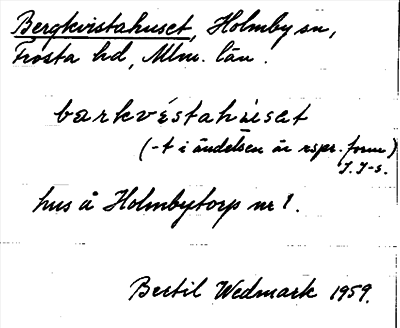 Bergkvistahuset, Holmby sn,
Frosta hd, Mlm. län.
barkvéstahúset
(-t i ändelsen är rspr. form)
I. I-s.
hus å Holmbytorp nr 1.
Bertil Wedmark 1959.